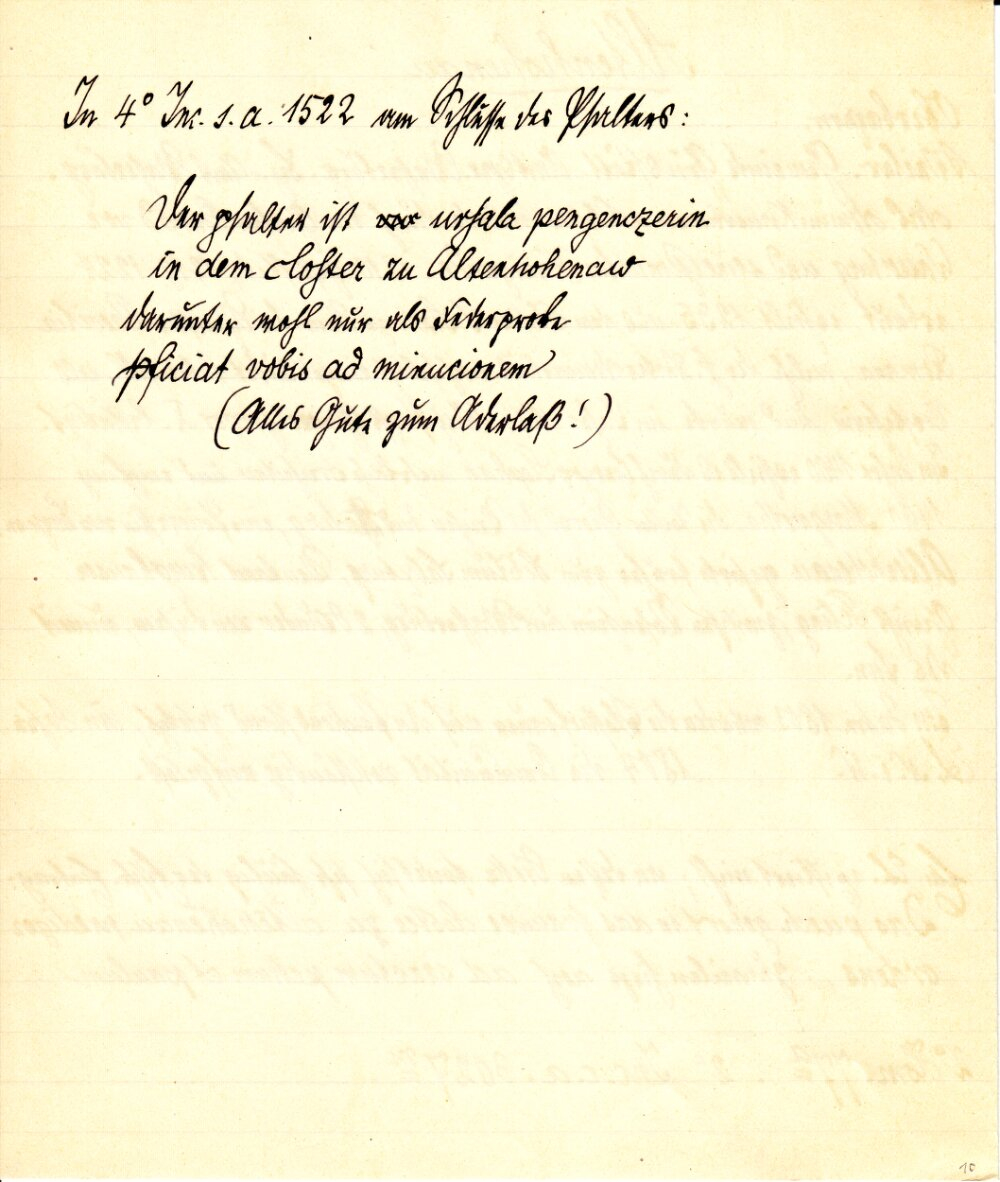 In 4° Inc. s. a. 1522 am Schlusse des Psalters:
Der psalter ist ursala pengenczerin
in dem closter zu Altenhohenaw
darunter wohl nur als Federprobe
pficiat vobis ad minucionem
(Alles Gute zum Aderlaß!)
10